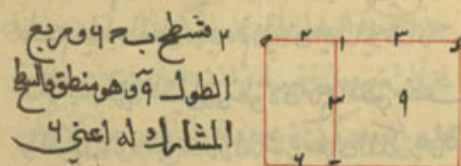 ٢ فسطح ب ح ٦ ومربع
الطول ٩ وهو منطق فالسطح
المشارك له اعني ٦
ه ٢ ا ٣ د
٣ ٩
٦